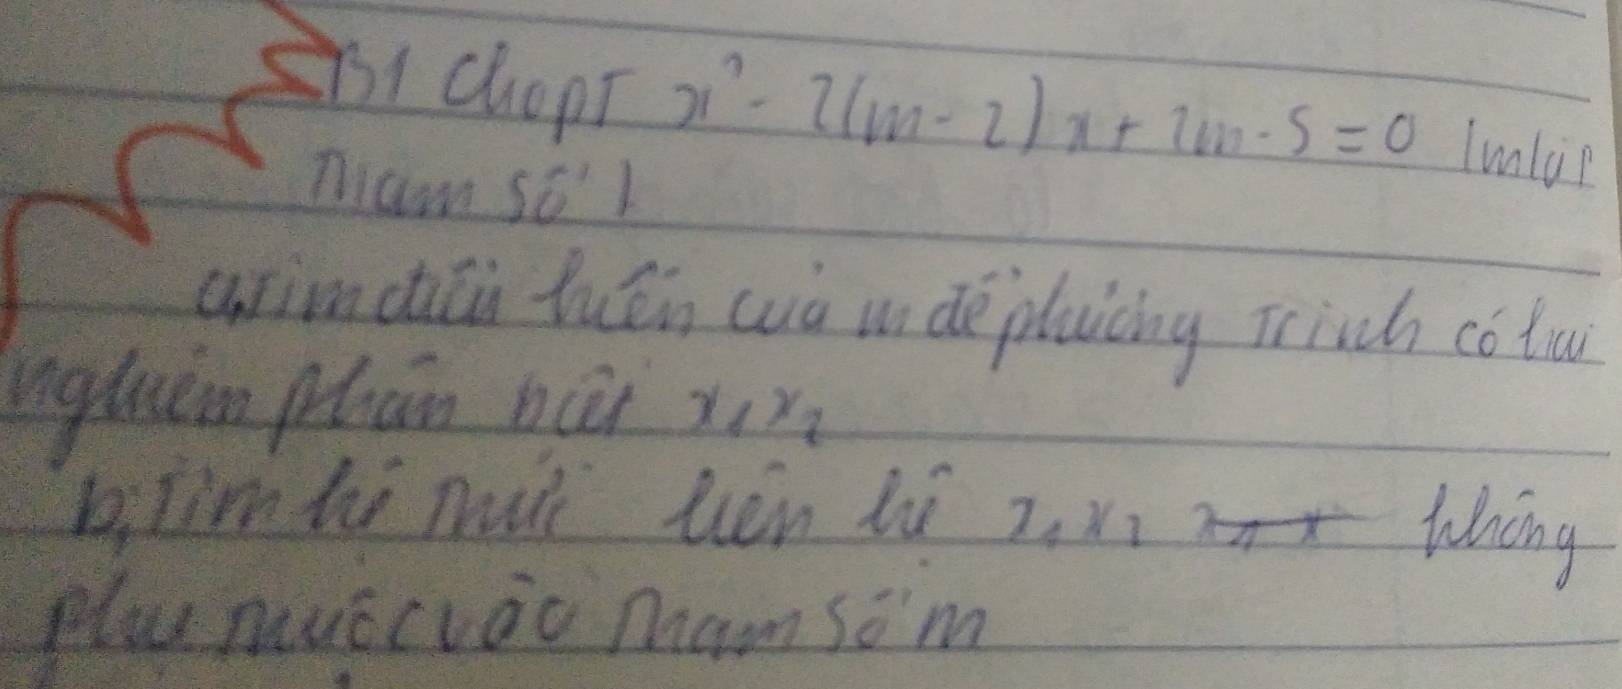 B1 Cho pT x² - 2(m-2)x + 2m - 5 = 0 (m là
Tham số)
a, Tìm điều kiện của m để phương Trình có hai
nghiệm phân biệt x₁x₂
b, Tìm hệ Thức liên hệ x₁x₂ không
phụ Thuộc vào Tham số m